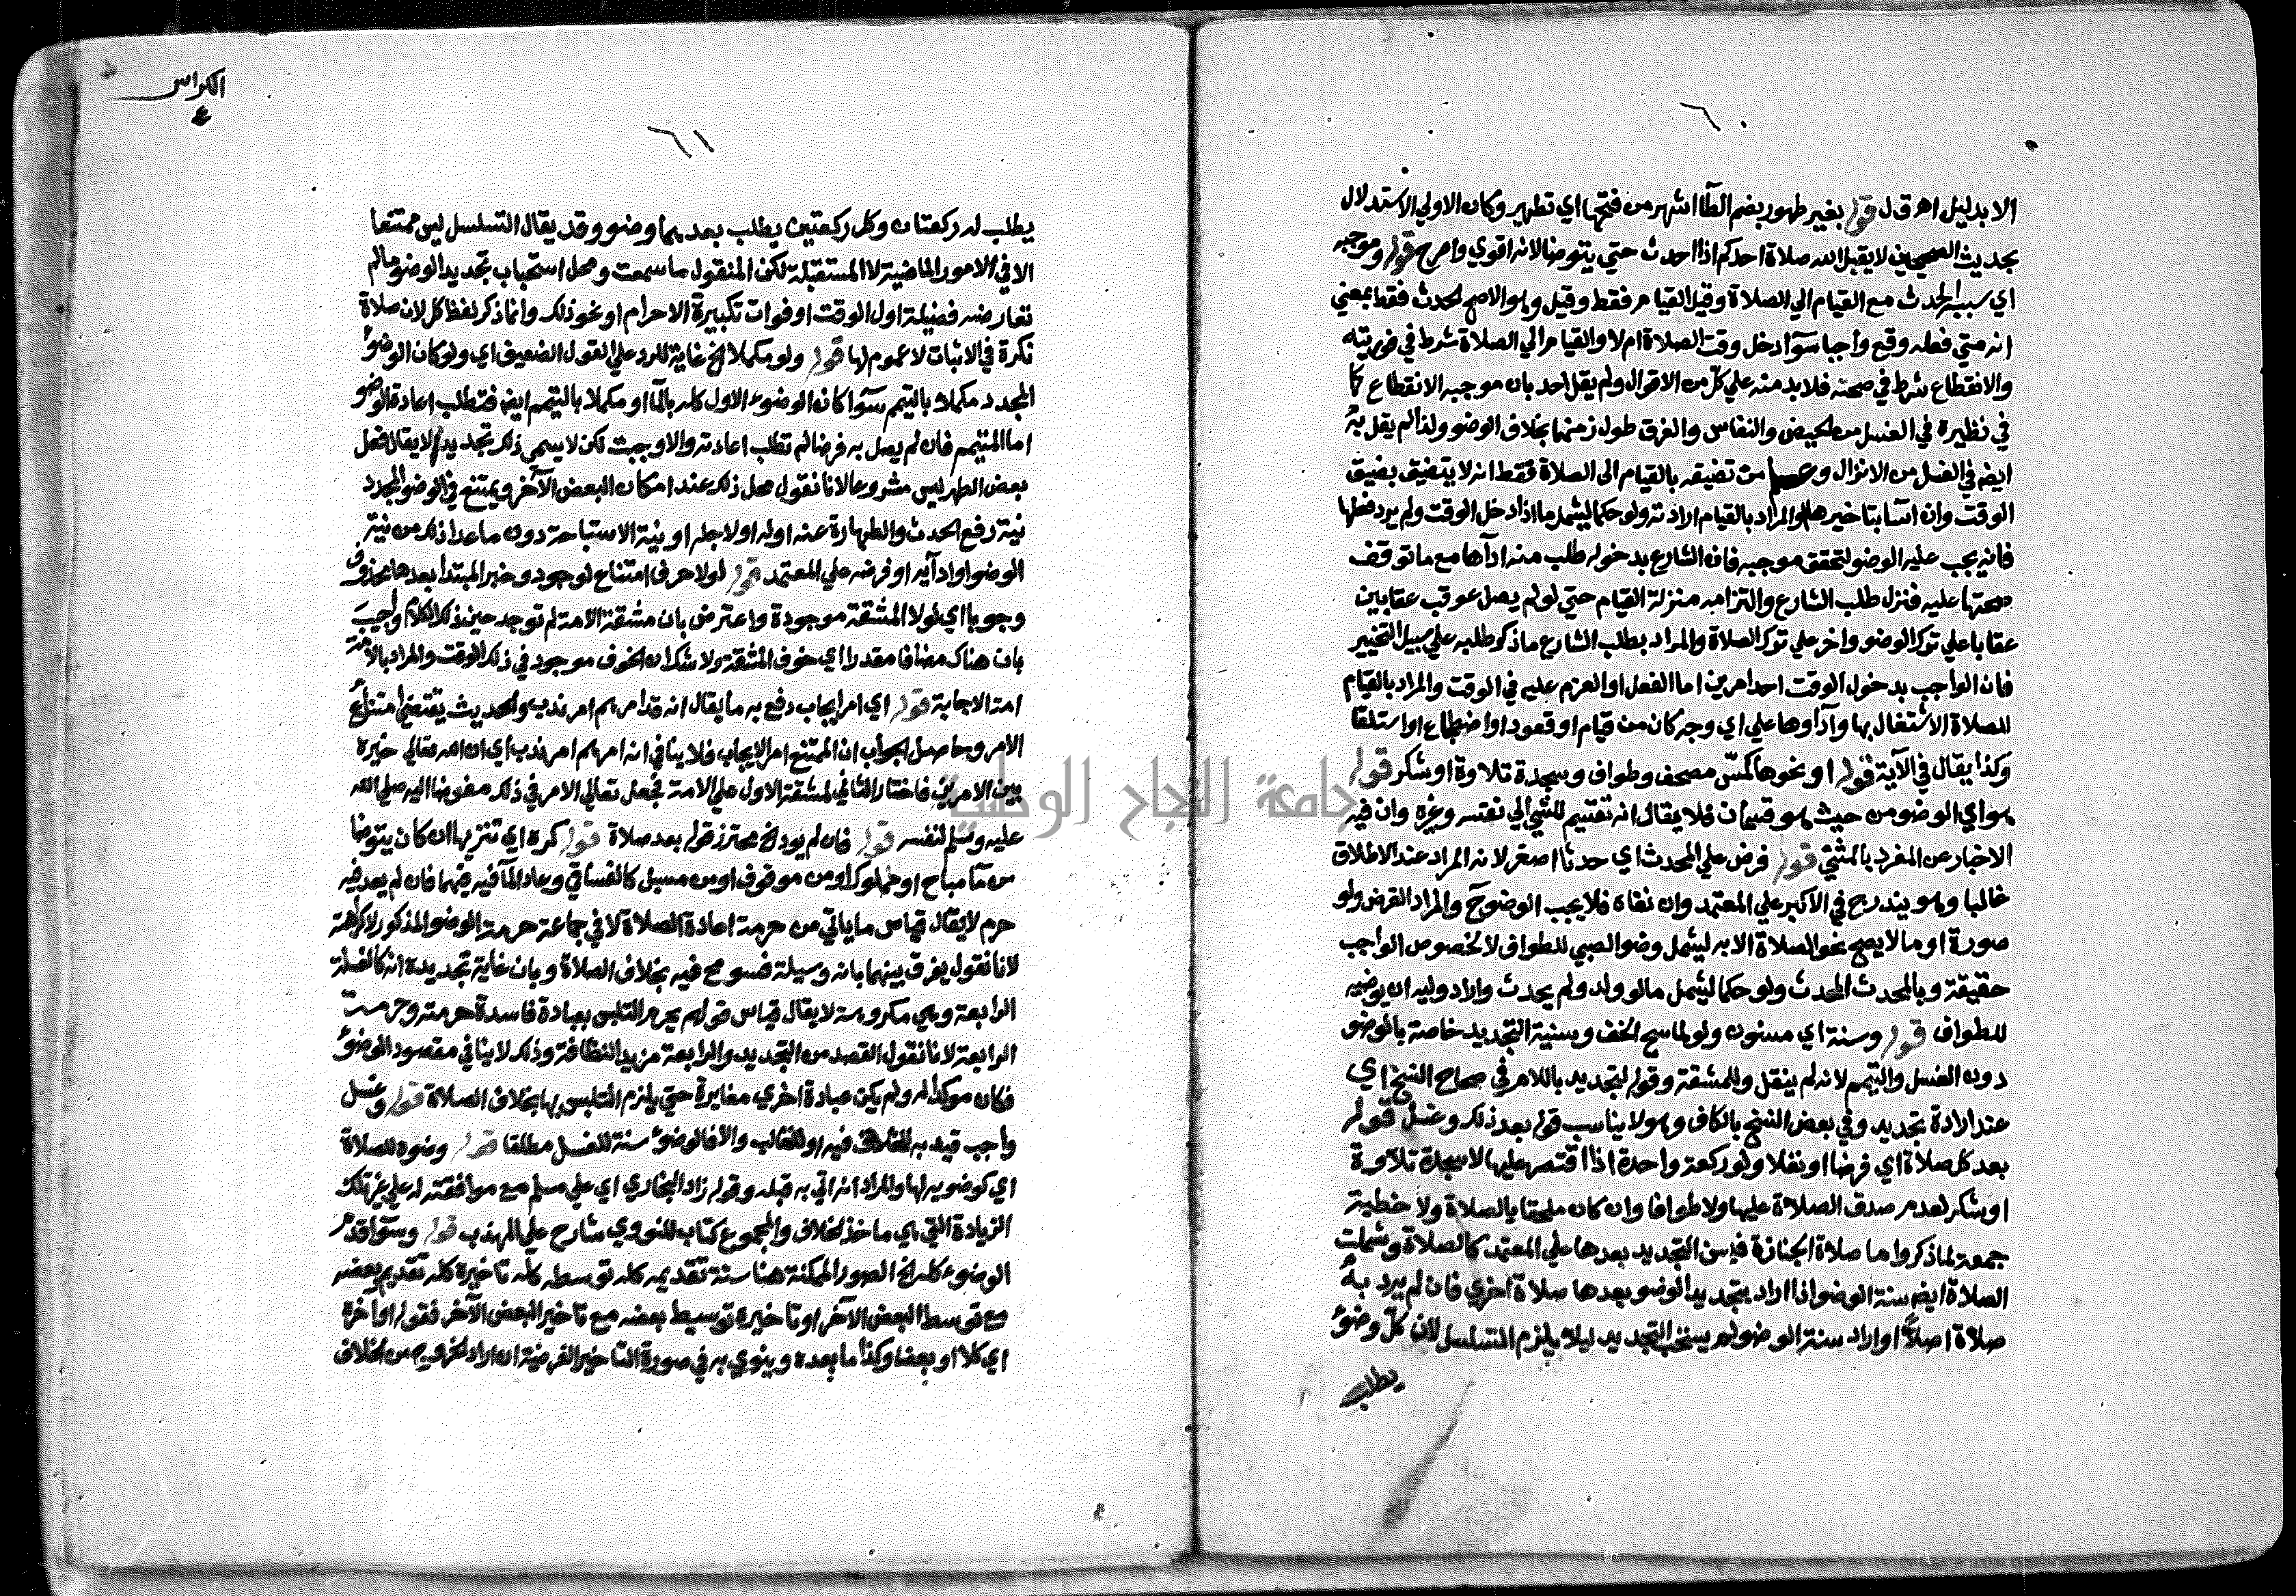 ٦٠
الا بدليل اهـ ق ل قوله بغير طهور بضم الطآ اشهر من فتحها اي تطهير وكان الاولي الاستدلال
بحديث الصحيحين لا يقبل الله صلاة احدكم اذا احدث حتي يتوضا لانه اقوي واصرح قوله وموجبه
اي سببه الحدث مع القيام الي الصلاة وقيل القيام فقط وقيل وهو الاصح الحدث فقط بمعني
انه متي فعله وقع واجبا سوآ ادخل وقت الصلاة ام لا والقيام الي الصلاة شرط في فوريته
والانقطاع شرط في صحته فلا بد منه علي كل من الاقوال ولم يقل احد بان موجبه الانقطاع كما
في نظيره في الغسل من الحيض والنفاس والفرق طول زمنهما بخلاف الوضو ولذا لم يقل به
ايضا في الغسل من الانزال و من تضيقه بالقيام الى الصلاة فقط انه لا يتضيق بضيق
الوقت وان اثم بتاخيرها والمراد بالقيام ارادته ولو حكما ليشمل ما اذا دخل الوقت ولم يرد فعلها
فانه يجب عليه الوضو لتحقق موجبه فان الشارع بدخوله طلب منه ادآها مع ما توقف
صحتها عليه فنزل طلب الشارع والتزامه منزلة القيام حتي لو لم يصل عوقب عقابين
عقابا علي ترك الوضو واخر علي ترك الصلاة والمراد بطلب الشارع ما ذكر طلبه علي سبيل التخيير
فان الواجب بدخول الوقت احد امرين اما الفعل او العزم عليه في الوقت والمراد بالقيام
للصلاة الاشتغال بها وآداوها علي اي وجه كان من قيام او قعود او اضطجاع او استلقا
وكذا يقال في الآية قوله او نحوها كمسّ مصحف وطواف وسجدة تلاوة او شكر قوله
هو اي الوضو من حيث هو قسمان فلا يقال انه تقسيم للشي الي نفسه وغيره وان فيه
الاخبار عن المفرد بالمثني قوله فرض علي المحدث اي حدثا اصغر لانه المراد عند الاطلاق
غالبا وهو يندرج في الاكبر علي المعتمد وان نفاه فلا يجب الوضوح والمراد الفرض ولو
صورة او ما لا يصح نحو الصلاة الا به ليشمل وضو الصبي للطواف لا لخصوص الواجب
حقيقة وبالمحدث المحدث ولو حكما ليشمل ما لو ولد ولم يحدث واراد وليه ان يوضيه
للطواف قوله وسنة اي مسنون ولو لماسح الخف وسنية التجديد خاصة بالوضو
دون الغسل والتيمم لانه لم ينقل وللمشقة وقوله لتجديد باللام في صحاح النسخ اي
عند ارادة تجديد وفي بعض النسخ بالكاف وهو لا يناسب قوله بعد ذلك وغسل قوله
بعد كل صلاة اي فرضا او نفلا ولو ركعة واحدة اذا اقتصر عليها لا سجدة تلاوة
او شكر لعدم صدق الصلاة عليها ولا طوافا وان كان ملحقا بالصلاة ولا خطبة
جمعة لما ذكر واما صلاة الجنازة فيسن التجديد بعدها علي المعتمد كالصلاة وشملت
الصلاة ايضا سنة الوضو اذا اراد بتجديد الوضو بعدها صلاة اخري فان لم يرد به
صلاة اصلاً او اراد سنة الوضو لم يستحب التجديد ليلا يلزم التسلسل لان كل وضوء
يطلب
الكراس
٤
٦١
يطلب له ركعتان وكل ركعتين يطلب بعدهما وضو وقد يقال التسلسل ليس ممتنعا
الا في الامور الماضية لا المستقبلة لكن المنقول ما سمعت ومحل استحباب تجديد الوضو ما لم
تعارضه فضيلة اول الوقت او فوات تكبيرة الاحرام او نحو ذلك وانما ذكر لفظ كل لان صلاة
نكرة في الاثبات لا عموم لها قوله ولو مكملا الخ غاية للرد علي القول الضعيف اي ولو كان الوضوء
المجدد مكملا بالتيمم سوآ كان الوضوء الاول كله بالمآ او مكملا بالتيمم ايضا فتطلب اعادة الوضو
اما المتيمم فان لم يصل به فرضا لم تطلب اعادته والا وجبت لكن لا يسمى ذلك تجديدا لا يقال فعل
بعض الطهر ليس مشروعا لانا نقول محل ذلك عند امكان البعض الآخر ويمتنع في الوضو المجدد
نية رفع الحدث والطهارة عنه اوله او لاجله او نية الاستباحة دون ما عدا ذلك من نية
الوضو او ادآئه او فرضه علي المعتمد قوله لولا حرف امتناع لوجود وخبر المبتدا بعدها محذوف
وجوبا اي لولا المشقة موجودة واعترض بان مشقة الامة لم توجد حين ذلك الكلام واجيب
بان هناك مضافا مقدرا اي خوف المشقة ولا شك ان الخوف موجود في ذلك الوقت والمراد بالامة
امة الاجابة قوله اي امر ايجاب دفع به ما يقال انه قد امرهم امر ندب والحديث يقتضي امتناع
الامر وحاصل الجواب ان الممتنع امر الايجاب فلا ينافي انه امرهم امر ندب اي ان الله تعالي خيره
بين الامرين فاختار الثاني لمشقة الاول علي الامة فجعل تعالي الامر في ذلك مفوضا اليه صلي الله
عليه وسلم لنفسه قوله فان لم يود الخ محترز قوله بعد صلاة قوله كره اي تنزيها ان كان يتوضا
من مآ مباح او مملوك او من موقوف او من مسبل كالفساقي وعاد المآ فيه فيهما فان لم يعد فيه
حرم لا يقال قياس ما ياتي من حرمة اعادة الصلاة لا في جماعة حرمة الوضو المذكور لا كراهته
لانا نقول يفرق بينهما بانه وسيلة فسومح فيه بخلاف الصلاة وبان غاية تجديده انه كالغسلة
الرابعة وهي مكروهة لا يقال قياس قولهم يحرم التلبس بعبادة فاسدة حرمته وحرمت
الرابعة لانا نقول القصد من التجديد والرابعة مزيد النظافة وذلك لا ينافي مقصود الوضوء
فكان موكدا له ولم يكن عبادة اخري مغايرة حتي يلزم التلبس بها بخلاف الصلاة قوله وغسل
واجب قيد به للخلاف فيه او للغالب والا فالوضوء سنة للغسل مطلقا قوله وضوه للصلاة
اي كوضويه لها والمراد انه اتي به قبله وقوله زاد البخاري اي علي مسلم مع موافقته له علي غير تلك
الزيادة التي هي ماخذ الخلاف والمجموع كتاب للنووي شارح علي المهذب قوله وسوآ قدم
الوضوء كله الخ الصور الممكنة هنا ستة تقديمه كله توسطه كله تاخيره كله تقديم بعضه
مع توسط البعض الآخر او تاخيره توسيط بعضه مع تاخير البعض الآخر فقوله او اخره
اي كلا او بعضا وكذا ما بعده وينوي به في صورة التاخير الفرضية ان اراد الخروج من الخلاف